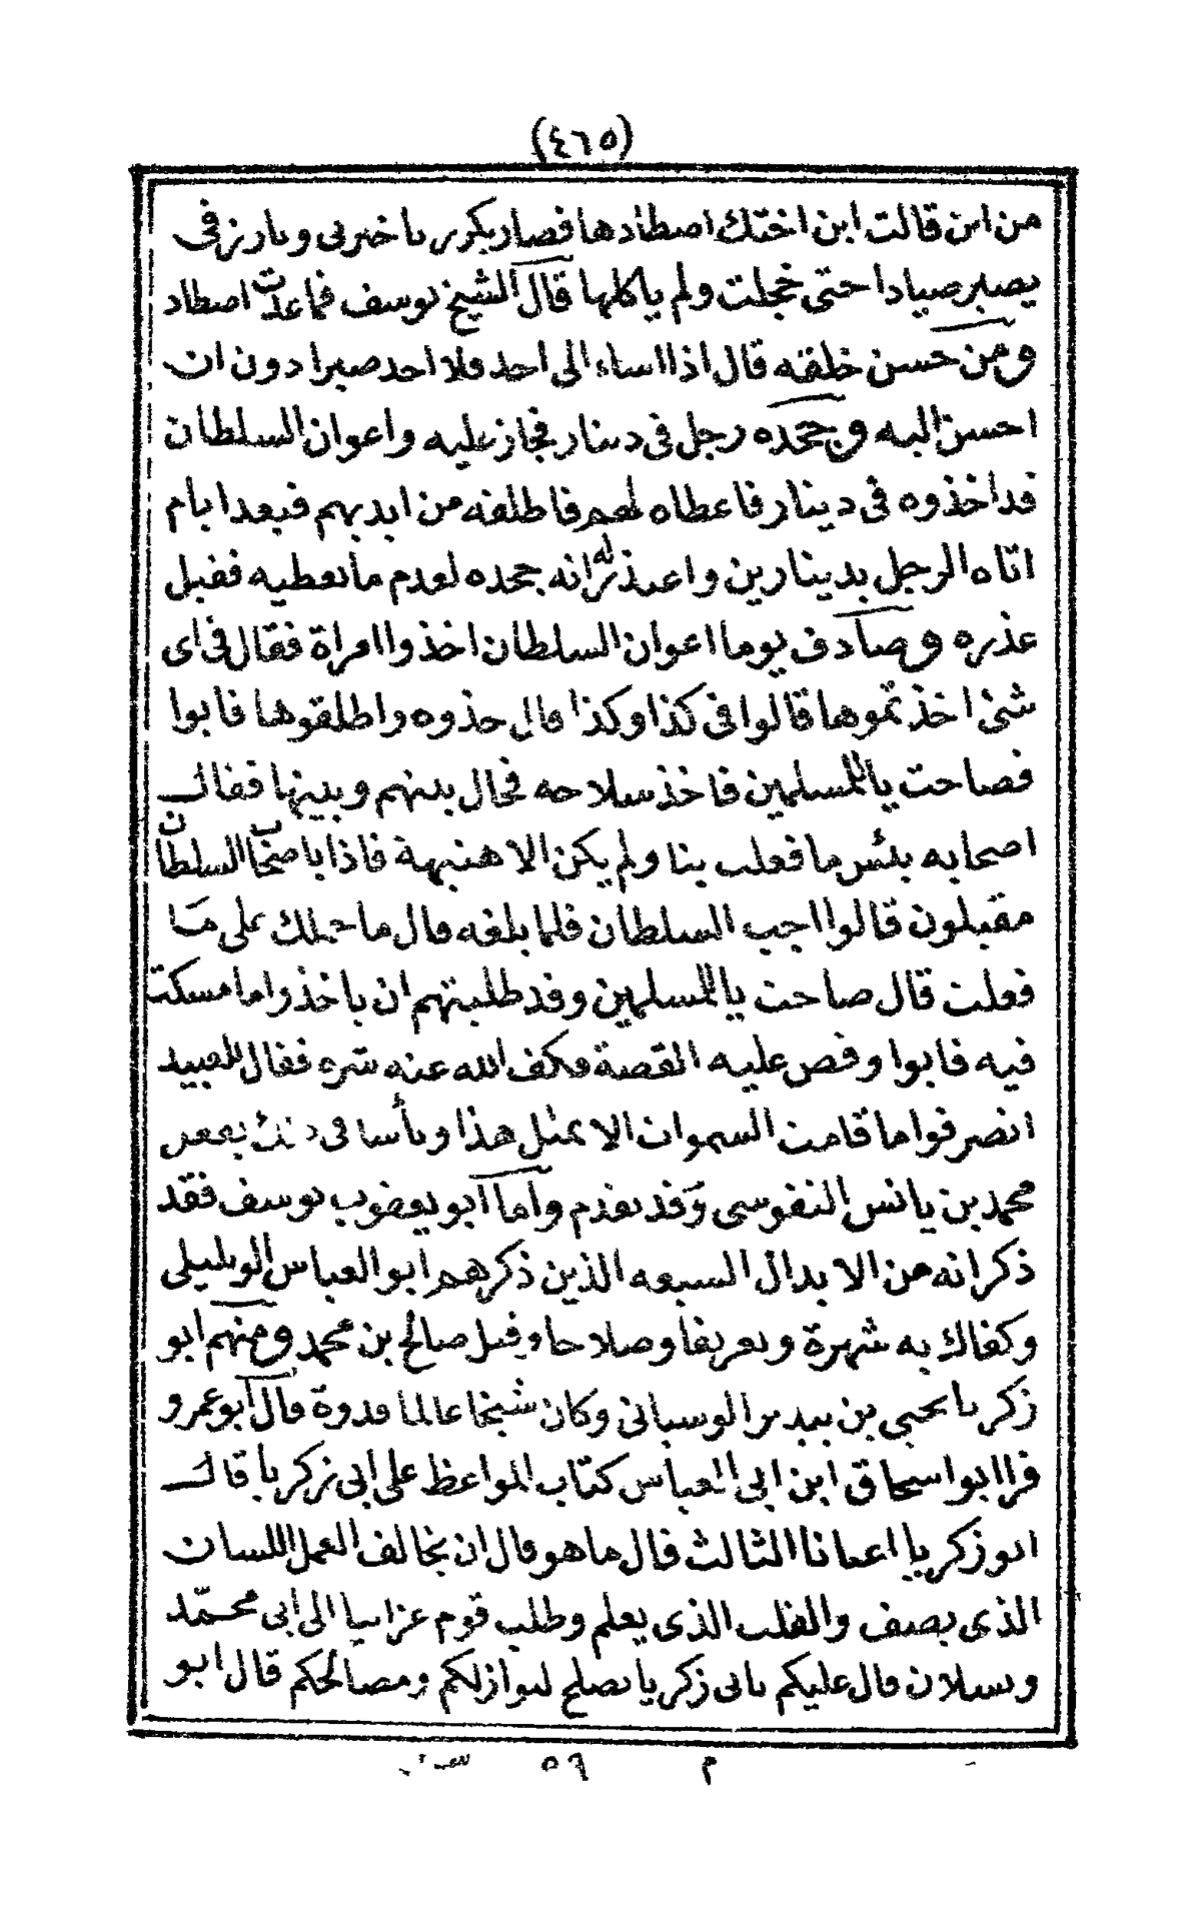 (٤٦٥)
من اين قالت ابن اختك اصطادها فصار يكرر يا خيربى ويارزقى
يصير صيادا حتى خجلت ولم ياكلها قال الشيخ يوسف فما عدت اصطاد
ومن حسن خلقه قال اذا اساء الى احد فلا احد صبرا دون ان
احسن اليه وجحده رجل فى دينار فجاز عليه واعوان السلطان
قد اخذوه فى دينار فاعطاه لهم فاطلقه من ايديهم فبعد ايام
اتاه الرجل بدينارين واعتذر له انه جحده لعدم ما يعطيه فقبل
عذره وصادف يوما اعوان السلطان اخذوا امراة فقال فى اى
شئ اخذتموها قالوا فى كذا وكذا قال خذوه واطلقوها فابوا
فصاحت يا للمسلمين فاخذ سلاحه فحال بينهم وبينها فقال
اصحابه بئس ما فعلت بنا ولم يكن الا هنيهة فاذا باصحاب السلطان
مقبلون قالوا اجب السلطان فلما بلغه قال ما حملك على ما
فعلت قال صاحت يا للمسلمين وقد طلبتهم ان ياخذوا ما امسكت
فيه فابوا وقص عليه القصة فكف الله عنه شره فقال للعبيد
انصرفوا ما قامت السموات الا بمثل هذا وبأسا فى ذلك يعض
محمد بن يانس النفوسى وقد تقدم واما ابو يعقوب يوسف فقد
ذكر انه من الابدال السبعه الذين ذكرهم ابو العباس الويليلى
وكفاك به شهرة وتعريفا وصلاحا وقيل صالح بن محمد ومنهم ابو
زكريا يحيى بن بيدير الوسيانى وكان شيخا عالما قدوة قال ابو عمرو
قرا ابو اسحاق ابن ابى العباس كتاب المواعظ على ابى زكريا قال
ابو زكريا اعيانا الثالث قال ما هو قال ان يخالف العمل اللسان
الذى يصف والقلب الذى يعلم وطلب قوم عزابيا الى ابى محمد
ويسلان قال عليكم بابى زكريا يصلح لنوازلكم ومصالحكم قال ابو
م ٥٩ س